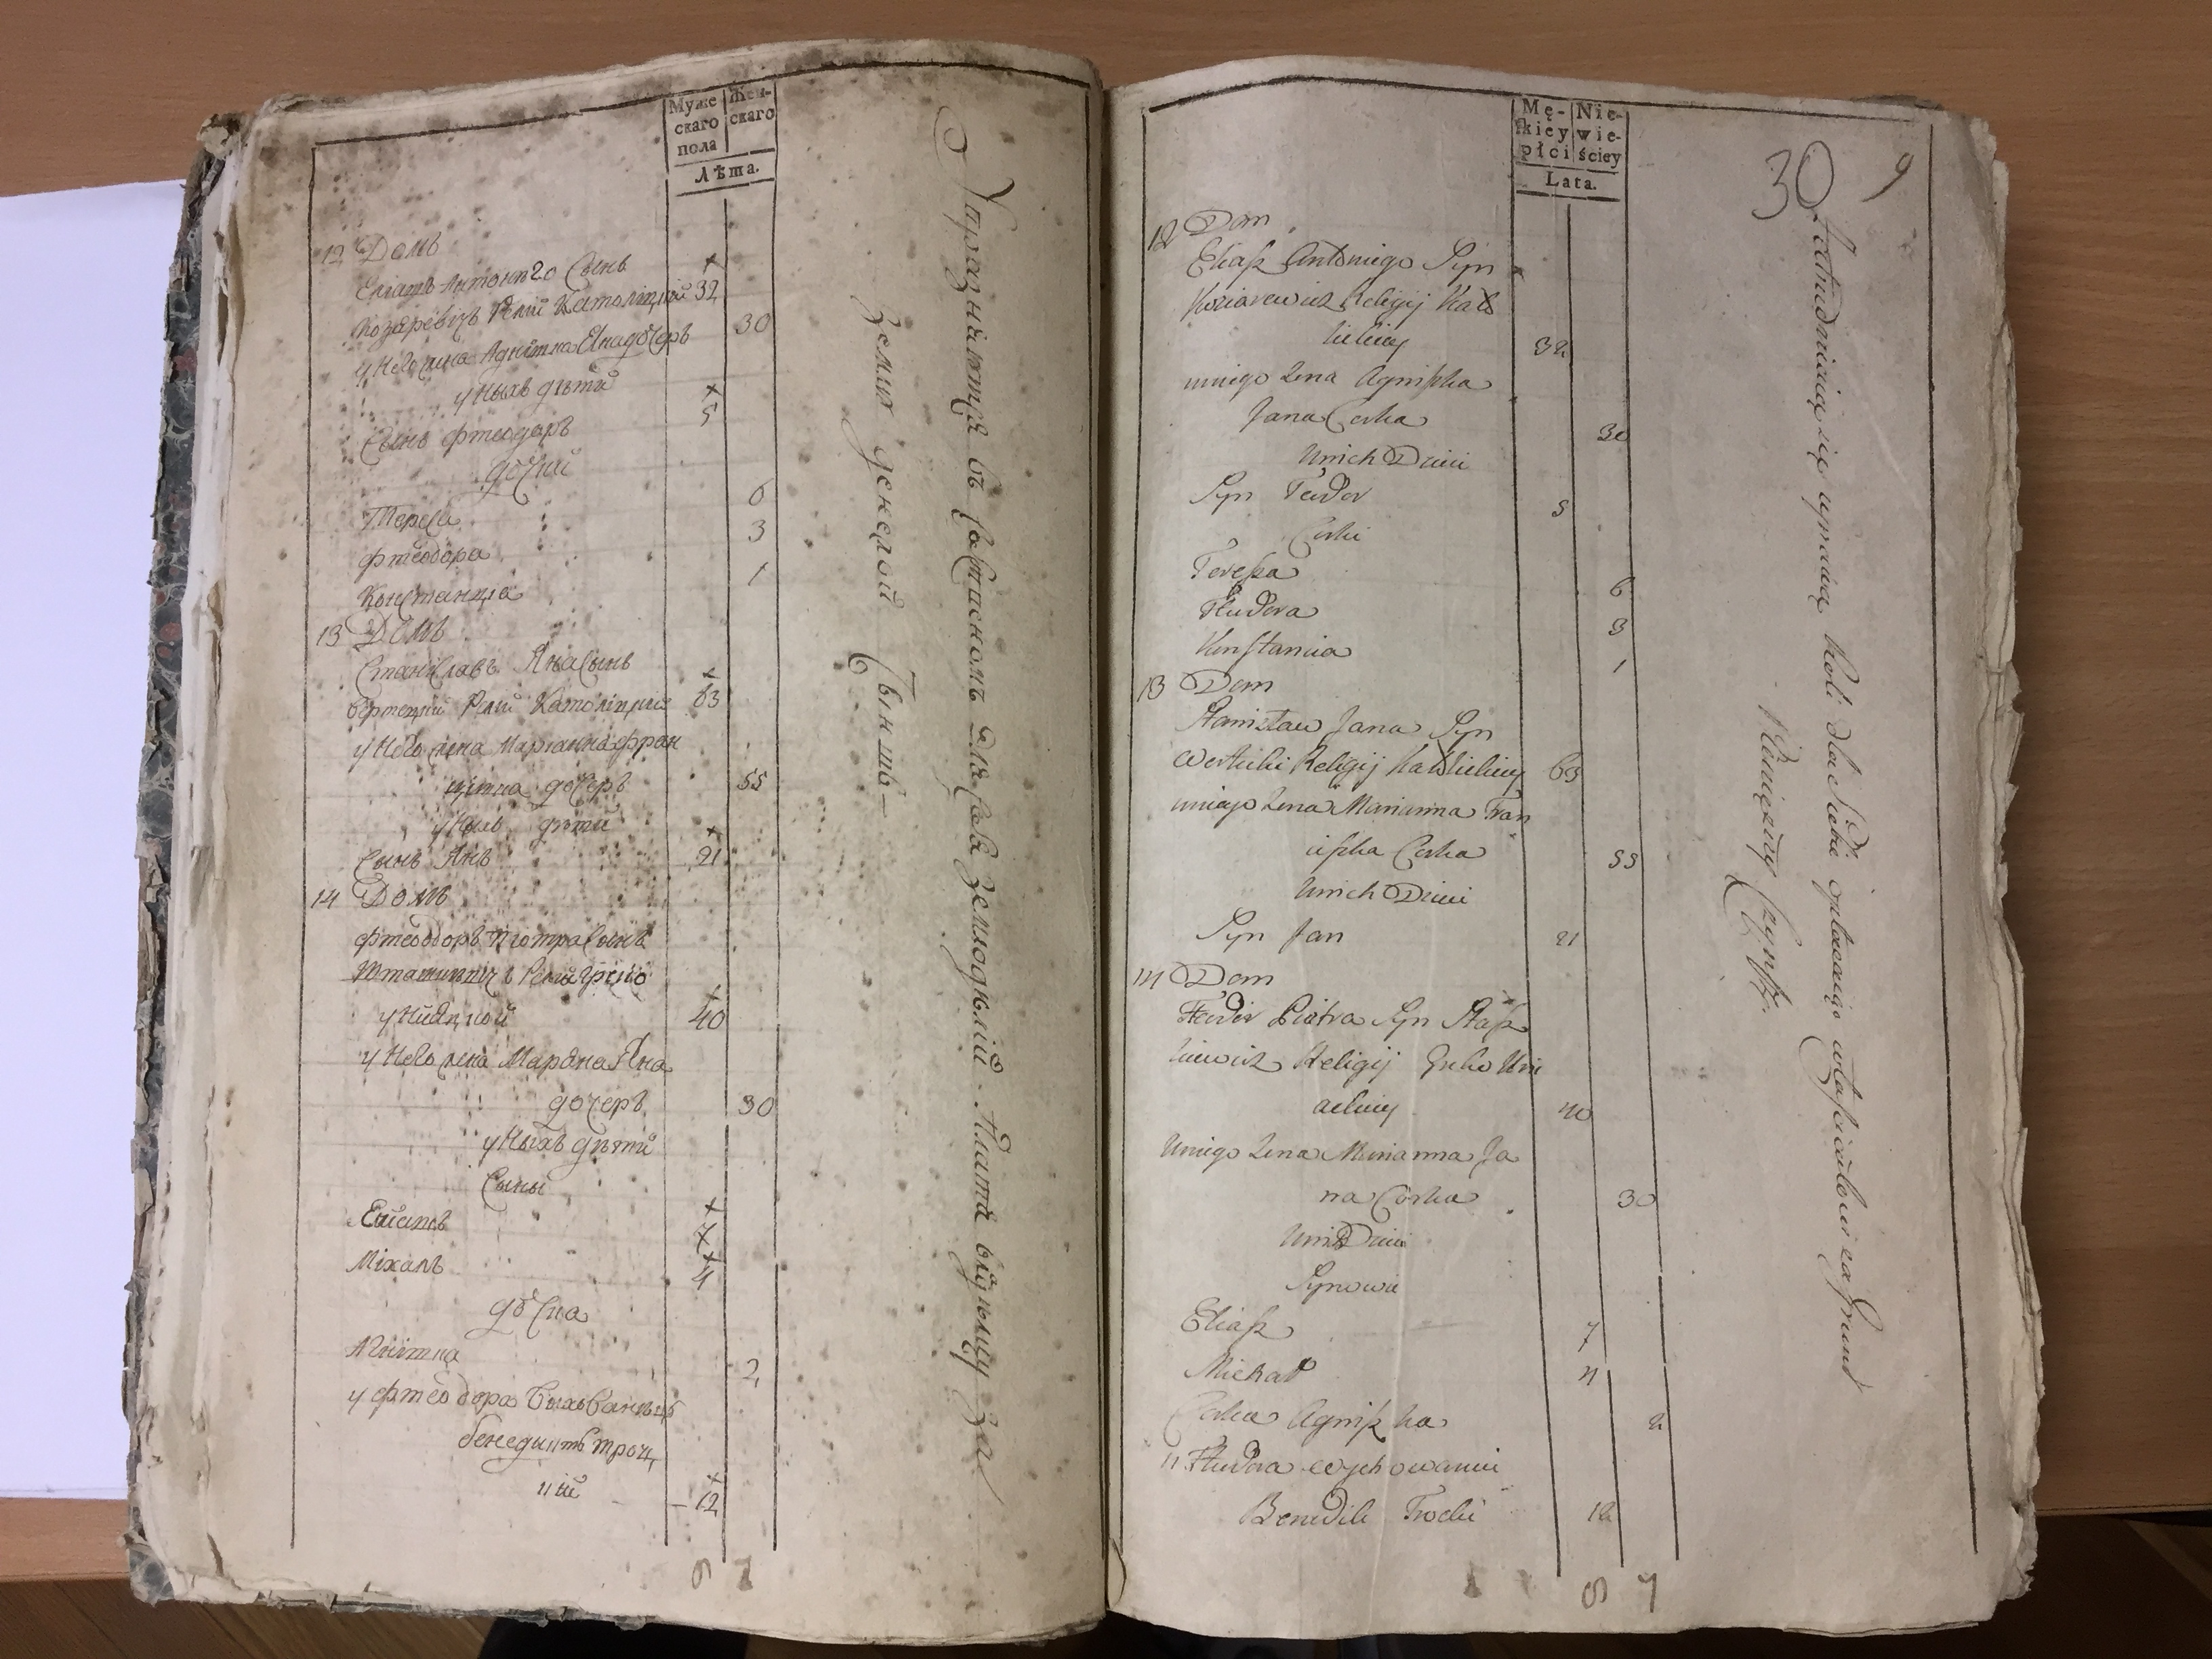 Муже
скаго
пола
Жен-
скаго
Лѣта.
12 Домъ
Еліашъ Антоніго Сынъ
Козаревічъ Релій Католіцкій 32
у Него жена Агнішка Яна дочеръ 30
у Ныхъ дѣти
Сынъ Фтеодоръ 5
дочки
Тереса 6
Фтеодора 3
Констанція 1
13 Домъ
Станіславъ Яна Сынъ
Релій Католіцкій 63
у Него жена Маріанна Фран
цішка дочеръ 55
у Ныхъ дѣти
Сынъ Янъ 21
14 Домъ
Фтеодоръ Піотра Сынъ
Релій Греко
Уніацкой 40
у Него жена Маріанна Яна
дочеръ 30
у Ныхъ дѣти
Сыны
Еліашъ 7
Міхалъ 4
дочка
Агнішка 2
у Фтеодора
бенедыктъ Троц
кій 12
9 7
Упражняются въ для себя Плата за
землю Чыншъ
Mę-
skiey
płci
Nie-
wie-
ściey
Lata.
30 9
12 Dom
Eliasz Antoniego Syn
Koziarewicz Religij Kato
lickiey 32
uniego żena Agniszka
Jana Corka 30
Unich Dzieci
Syn Teodor 5
Corki
Teresza 6
Fteodora 3
Konstancia 1
13 Dom
Stanisław Jana Syn
Wertecki Religij Katolickiey 63
uniego żena Marianna Fran
ciszka Corka 55
Unich Dzieci
Syn Jan 21
14 Dom
Fteodor Piotra Syn Stasz
kiewicz Religij Greko Uni
ackiey 40
Uniego żena Marianna Ja
na Corka 30
Unich Dzieci
Synowie
Eliasz 7
Michał 4
Corka Agniszka 2
U Fteodora wychowaniec
Benedikt Trocki 12
9 7
Zatrudniaią się uprawą Roli dla Siebie opłacaiąc właścicielowi za Grunt
Pieniężny Czynsz.